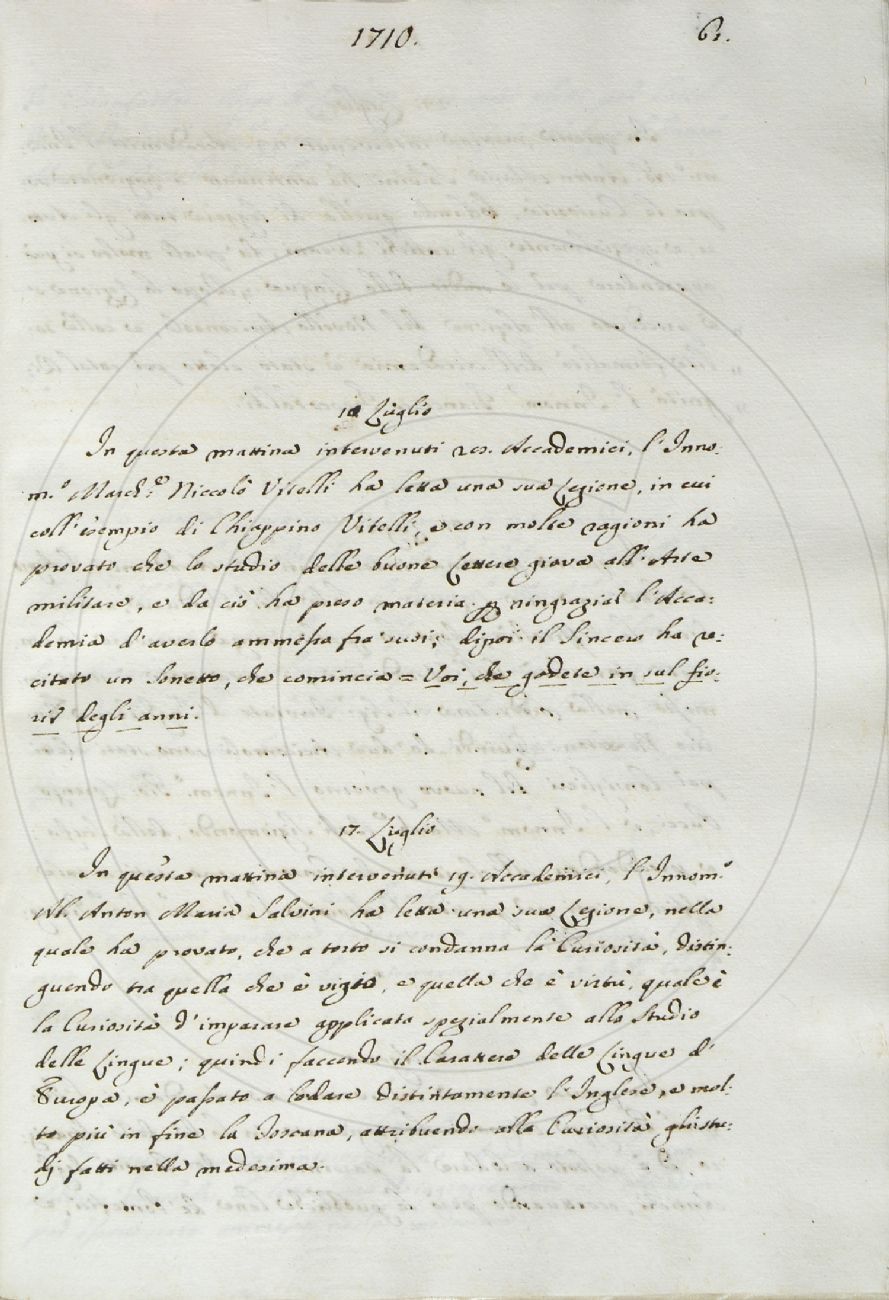 1710. 61.
10 Luglio
In questa mattina intervenuti 20. Accademici, l'Inno:
m.º March:se Niccolò Vitelli ha letta una sua Lezione, in cui
coll'esempio di Chiappino Vitelli, e con molte ragioni ha
provato che lo studio delle buone Lettere giova all'Arte
militare, e da ciò ha preso materia di ringraziar l'Acca:
demia d'averlo ammesso fra' suoi; dipoi il Sincero ha re:
citato un Sonetto, che comincia = Voi, che godete in sul fio:
rir degli anni.
17. Luglio
In questa mattina intervenuti 19. Accademici, l'Innom.º
Ab. Anton Maria Salvini ha letta una sua Lezione, nella
quale ha provato, che a torto si condanna la Curiosità, distin:
guendo tra quella che è vizio, e quella che è virtù, quale è
la Curiosità d'imparare applicata spezialmente allo Studio
delle Lingue; quindi facendo il Carattere delle Lingue d'
Europa, è passato a lodare distintamente l'Inglese, e mol:
to più in fine la Toscana, attribuendo alla Curiosità gli stu:
dj fatti nella medesima.